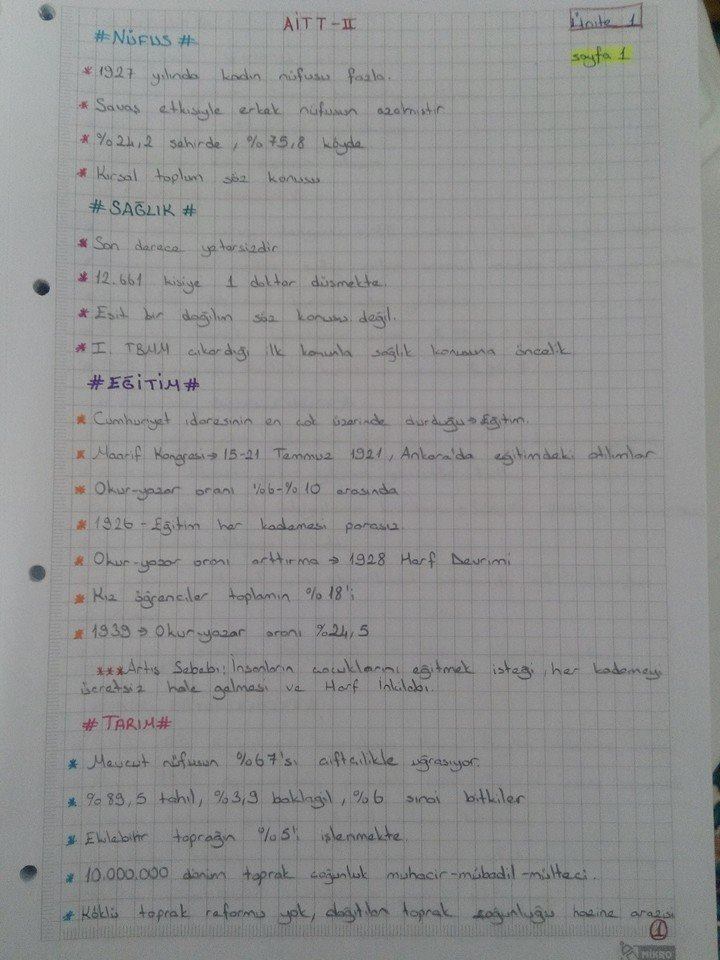 AİTT-II
Ünite 1
sayfa 1
#NÜFUS#
* 1927 yılında kadın nüfusu fazla.
* Savaş etkisiyle erkek nüfusun azalmıştır
* %24,2 şehirde, %75,8 köyde
* Kırsal toplum söz konusu
#SAĞLIK#
* Son derece yetersizdir
* 12.661 kişiye 1 doktor düşmekte.
* Eşit bir dağılım söz konusu değil.
* I. TBMM çıkardığı ilk kanunla sağlık konusuna öncelik
#EĞİTİM#
* Cumhuriyet idaresinin en çok üzerinde durduğu→Eğitim.
* Maarif Kongresi→15-21 Temmuz 1921, Ankara'da eğitimdeki atılımlar
* Okur-yazar oranı %6-%10 arasında
* 1926-Eğitim her kademesi parasız.
* Okur-yazar oranı arttırma → 1928 Harf Devrimi
* Kız öğrenciler toplamın %18'i
* 1939→Okur-yazar oranı %24,5
***Artış Sebebi; İnsanların çocuklarını eğitmek isteği, her kademeyi
ücretsiz hale gelmesi ve Harf İnkılabı.
#TARIM#
* Mevcut nüfusun %67'si çiftçilikle uğraşıyor.
* %89,5 tahıl, %3,9 baklagil, %6 sınai bitkiler
* Ekilebilir toprağın %5'i işlenmekte.
* 10.000.000 dönüm toprak çoğunluk muhacir-mübadil-mülteci.
* Köklü toprak reformu yok, dağıtılan toprak çoğunluğu hazine arazisi
1
MİKRO